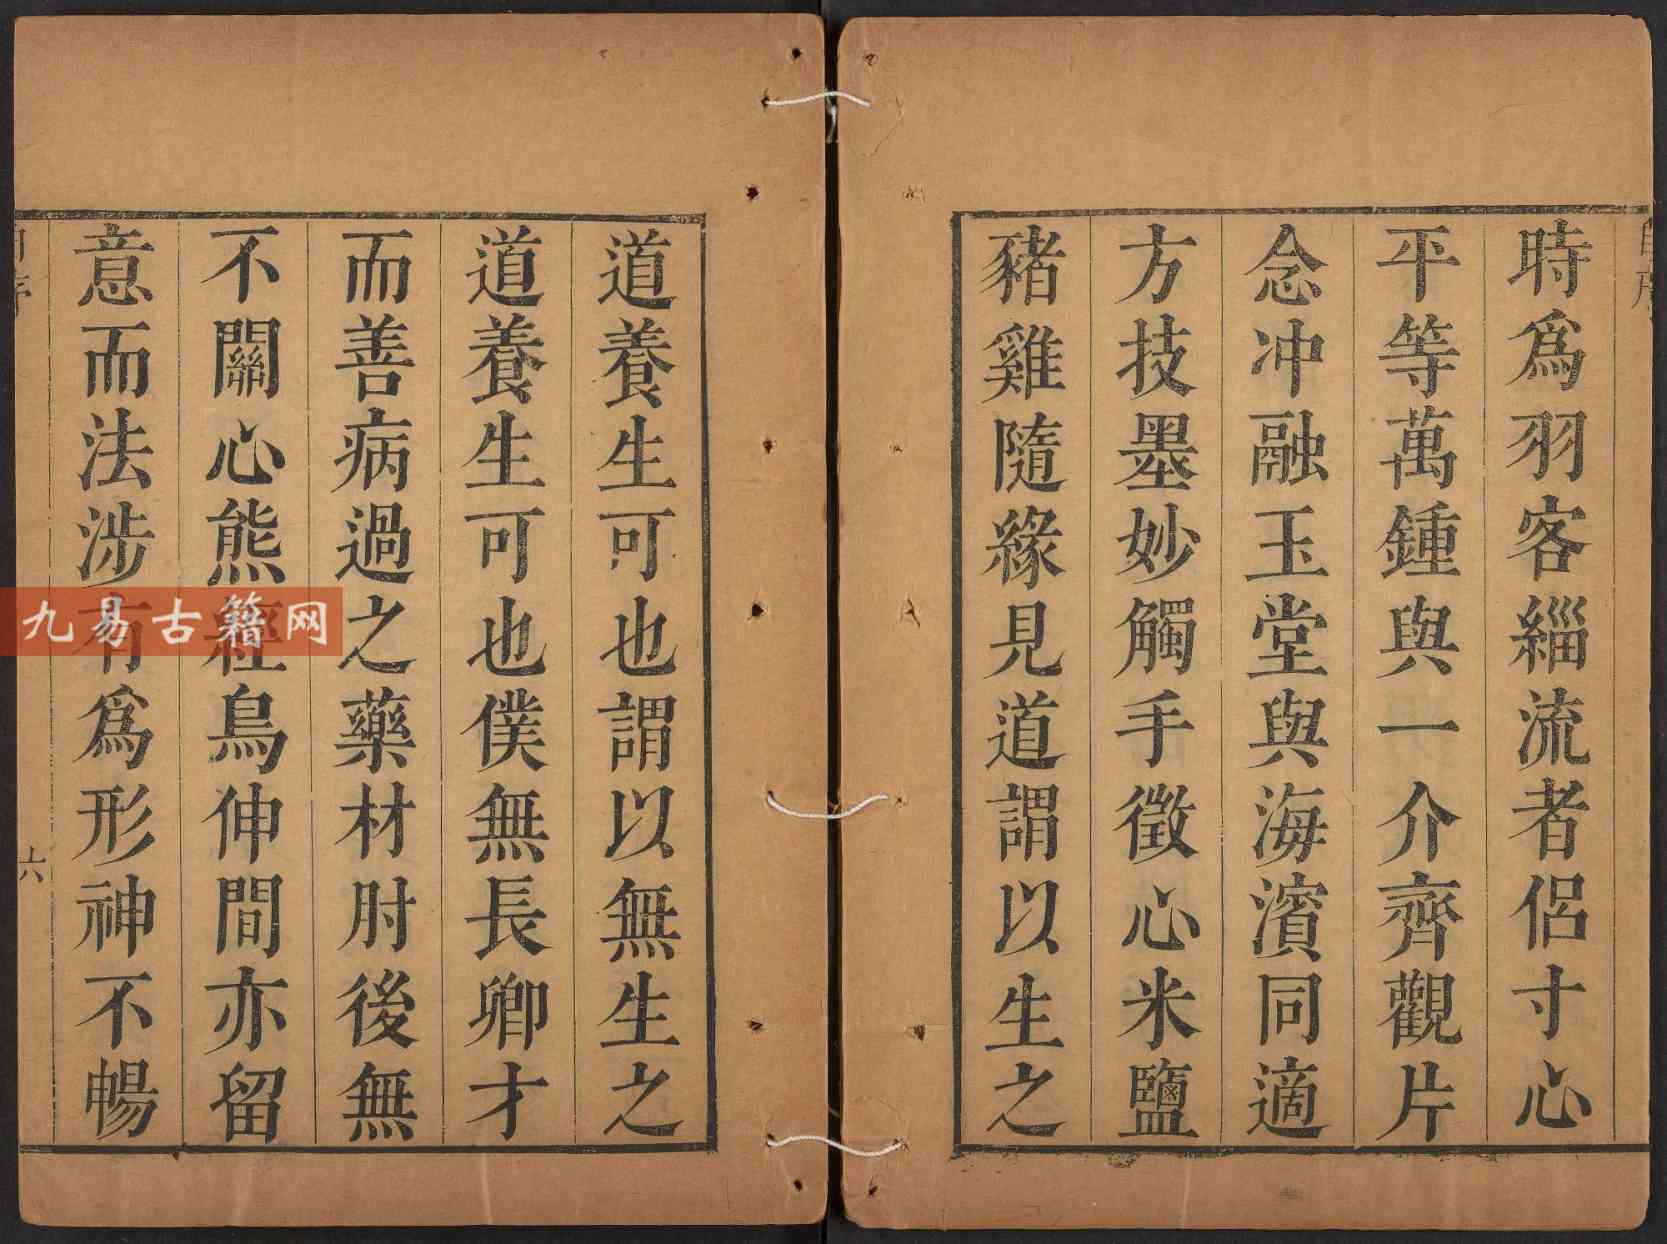 時爲羽客緇流者侶寸心
平等萬鍾與一介齊觀片
念冲融玉堂與海濱同適
方技墨妙觸手徵心米鹽
豬雞隨緣見道謂以生之
道養生可也謂以無生之
道養生可也僕無長卿才
而善病過之藥材肘後無
不關心熊經鳥伸間亦留
意而法涉有爲形神不暢
六
九易古籍网